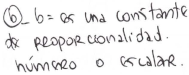 (b) b = es una constante
de proporcionalidad.
número o escalar.